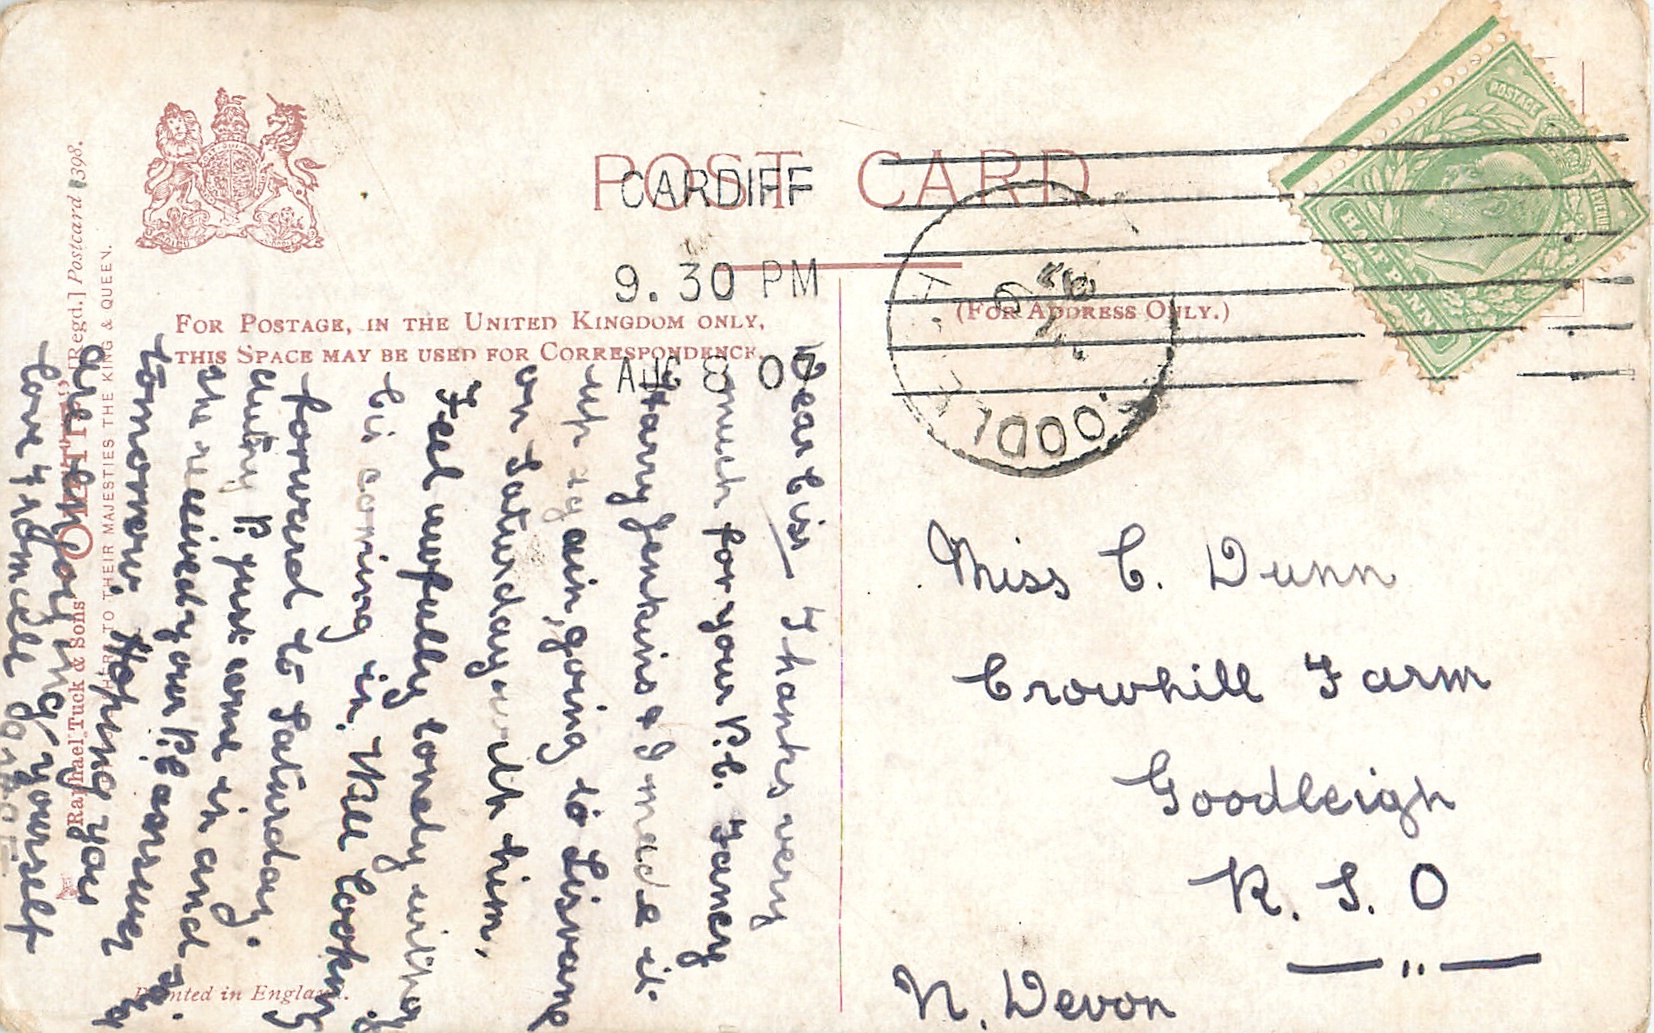 POST CARD
CARDIFF
9.30 PM
AUG 8 07
FOR POSTAGE, IN THE UNITED KINGDOM ONLY,
THIS SPACE MAY BE USED FOR CORRESPONDENCE.
(FOR ADDRESS ONLY.)
POSTAGE
REVENUE
HALFPENNY
1000
Miss C. Dunn
Crowhill Farm
Goodleigh
R. S. O
N. Devon
Dear Cis Thanks very
much for your P.C. Fancy
Harry Jenkins & I made it
up again, going to Lisvane
on Saturday with him.
Feel awfully lonely without
Cis coming in. Will looking
forward to Saturday.
Auntie P. just come in and
she received your P.C.
tomorrow. Hoping you
are enjoying yourself
love from all
Raphael Tuck & Sons "OILETTE" [Regd.] Postcard 1398.
TO THEIR MAJESTIES THE KING & QUEEN.
Printed in England.